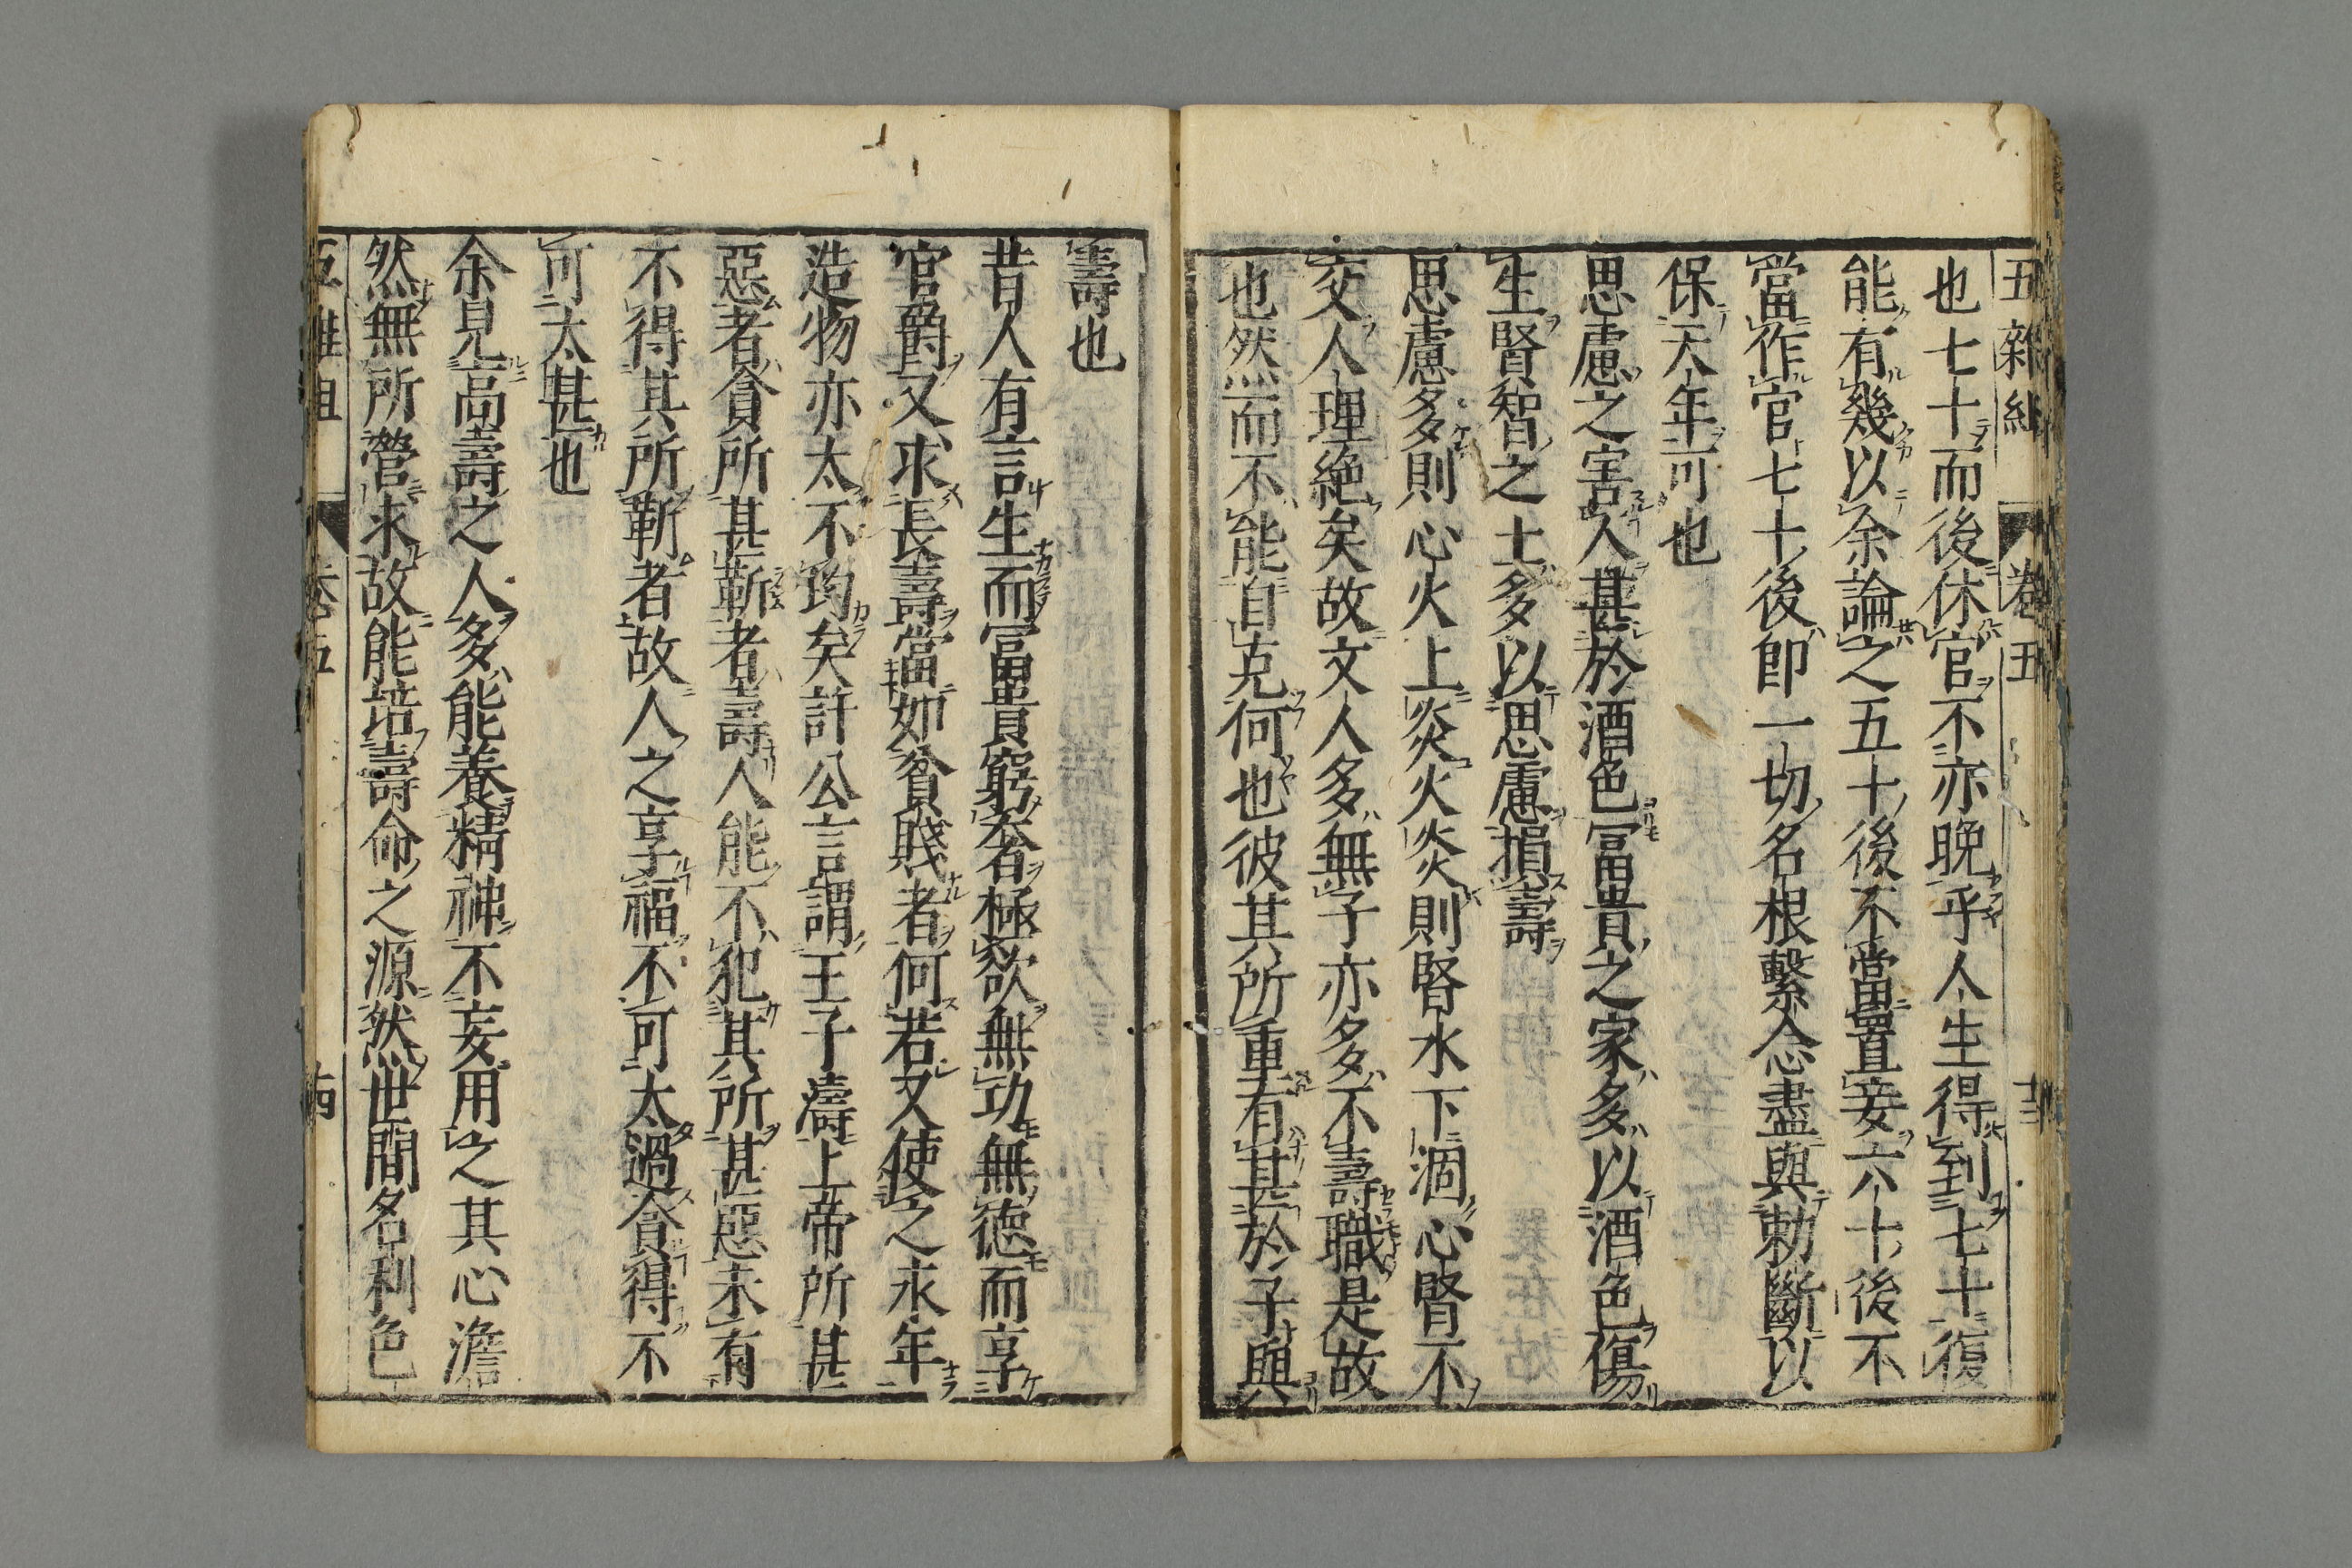 五雜組 卷五 十三
也七十而後休官不亦晩乎人生得到七十復
能有幾以余論之五十後不當置妾六十後不
當作官七十後即一切名根繫念盡與勅斷以
保天年可也
思慮之害人甚於酒色冨貴之家多以酒色傷
生賢智之士多以思慮損壽
思慮多則心火上炎火炎則腎水下涸心腎不
交人理絶矣故文人多無子亦多不壽職是故
也然而不能自克何也彼其所重有甚於子與
壽也
昔人有言生而冨貴窮奢極欲無功無徳而享
官爵又求長壽當如貧賤者何若又使之永年
造物亦太不均矣許公言謂王子濤上帝所甚
惡者貪所甚靳者壽人能不犯其所甚惡未有
不得其所靳者故人之享福不可太過貪得不
可太甚也
余見高壽之人多能養精神不妄用之其心澹
然無所營求故能培壽命之源然世間名利色
五雜組 卷五